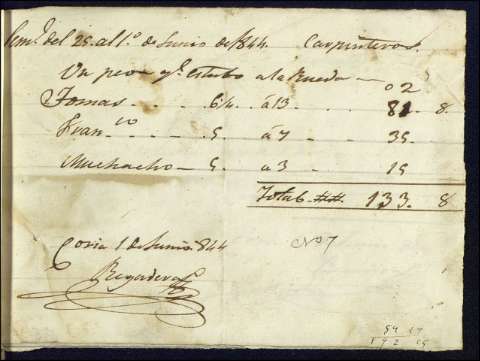 Sem.ª del 25 al 1.º de Junio de 1844. Carpinteros.
Un peon q.e estubo a la Rueda — 02
Tomas . . . . 6¼ . á 13 . . . 81 . 8.
Fran.co . . . . 5 . á 7 . . . 35 .
Muchacho — 5 . á 3 . . . 15
Total 133 . 8
Coria 1 de Junio 844
N.º 7
Regadera
84 17
192 05